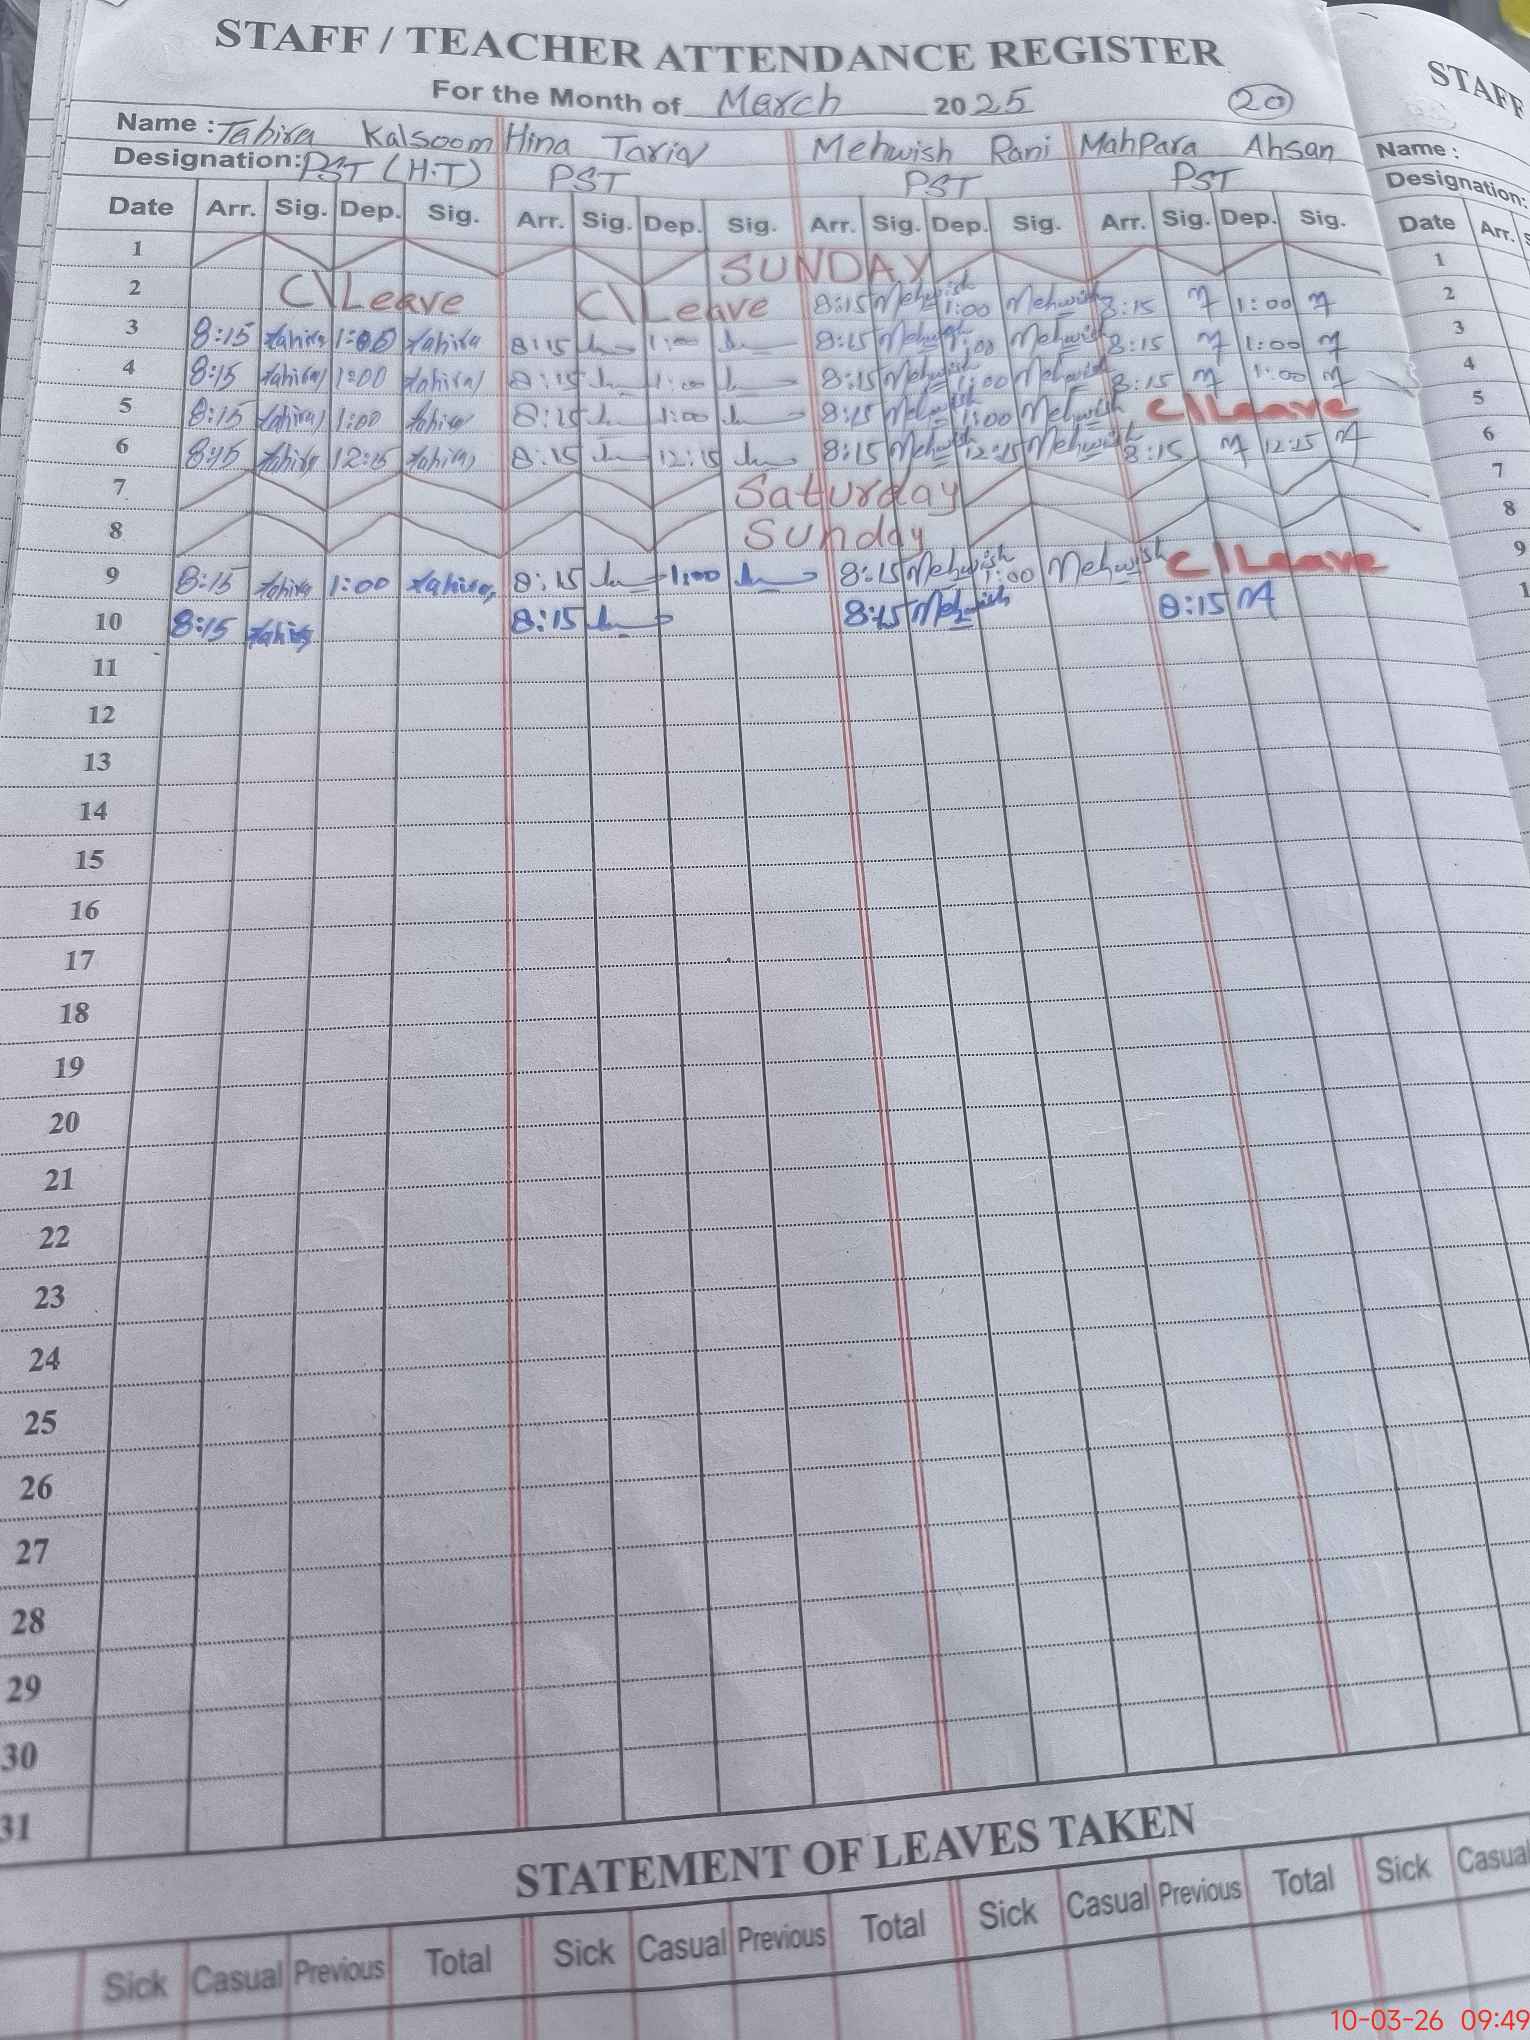 STAFF / TEACHER ATTENDANCE REGISTER
For the Month of March 2025 20
Name : Tahira Kalsoom Hina Tariq Mehwish Rani MahPara Ahsan
Designation: PST (H.T) PST PST PST
Date Arr. Sig. Dep. Sig. Arr. Sig. Dep. Sig. Arr. Sig. Dep. Sig. Arr. Sig. Dep. Sig.
1 SUNDAY
2 C\Leave C\Leave 8:15 Mehwish 1:00 Mehwish 8:15 M 1:00 M
3 8:15 tahira 1:00 tahira 8:15 1:00 8:15 Mehwish 1:00 Mehwish 8:15 M 1:00 M
4 8:15 tahira 1:00 tahira 8:15 1:00 8:15 Mehwish 1:00 Mehwish 8:15 M 1:00 M
5 8:15 tahira 1:00 tahira 8:15 1:00 8:15 Mehwish 1:00 Mehwish C\Leave
6 8:15 tahira 12:15 tahira 8:15 12:15 8:15 Mehwish 12:15 Mehwish 8:15 M 12:15 M
7 Saturday
8 Sunday
9 8:15 tahira 1:00 tahira 8:15 1:00 8:15 Mehwish 1:00 Mehwish C\Leave
10 8:15 tahira 8:15 8:15 Mehwish 8:15 M
11
12
13
14
15
16
17
18
19
20
21
22
23
24
25
26
27
28
29
30
31
STATEMENT OF LEAVES TAKEN
Sick Casual Previous Total Sick Casual Previous Total Sick Casual Previous Total Sick Casual
STAFF
Name :
Designation:
Date Arr.
1
2
3
4
5
6
7
8
9
10-03-26 09:49